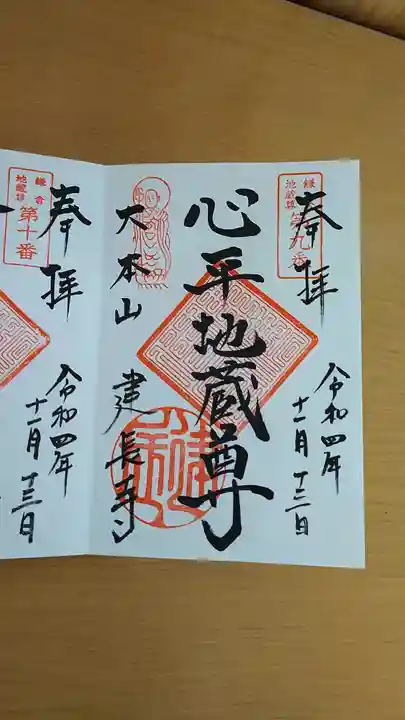 鎌倉
地蔵巡
第九番
奉拝
令和四年
十一月十三日
心平地蔵尊
大本山
建長寺
鎌倉
地蔵巡
第十番
奉拝
令和四年
十一月十三日